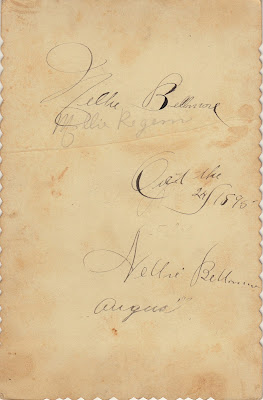 Nellie Bellmore
Mollie Rogers
Oct the
24/1895
Nellie Bellmore
August